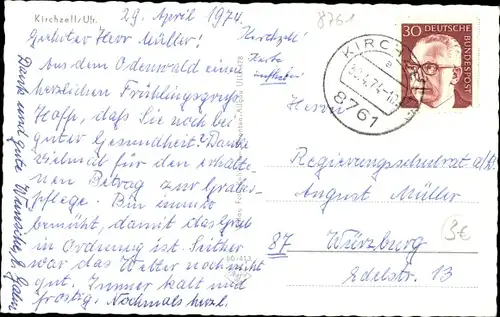 Kirchzell/Ufr.
29. April 1974.
Geehrter Herr Müller!
Aus dem Odenwald einen
herzlichen Frühlingsgruß.
Hoffe, daß Sie noch bei
guter Gesundheit? Danke
vielmals für den erhalte-
nen Betrag zur Grabes-
pflege. Bin immer
bemüht, damit das Grab
in Ordnung ist. Seither
war das Wetter noch nicht
gut. Immer kalt und
frostig. Nochmals herzl.
Dank und gute Wünsche,
Kirchzell
Karte
aufheben
8761
KIRCH
30.4.74
8761
30 DEUTSCHE
BUNDESPOST
Herrn
Regierungsschulrat a/D.
August Müller
87 Würzburg
Edelstr. 13
3€